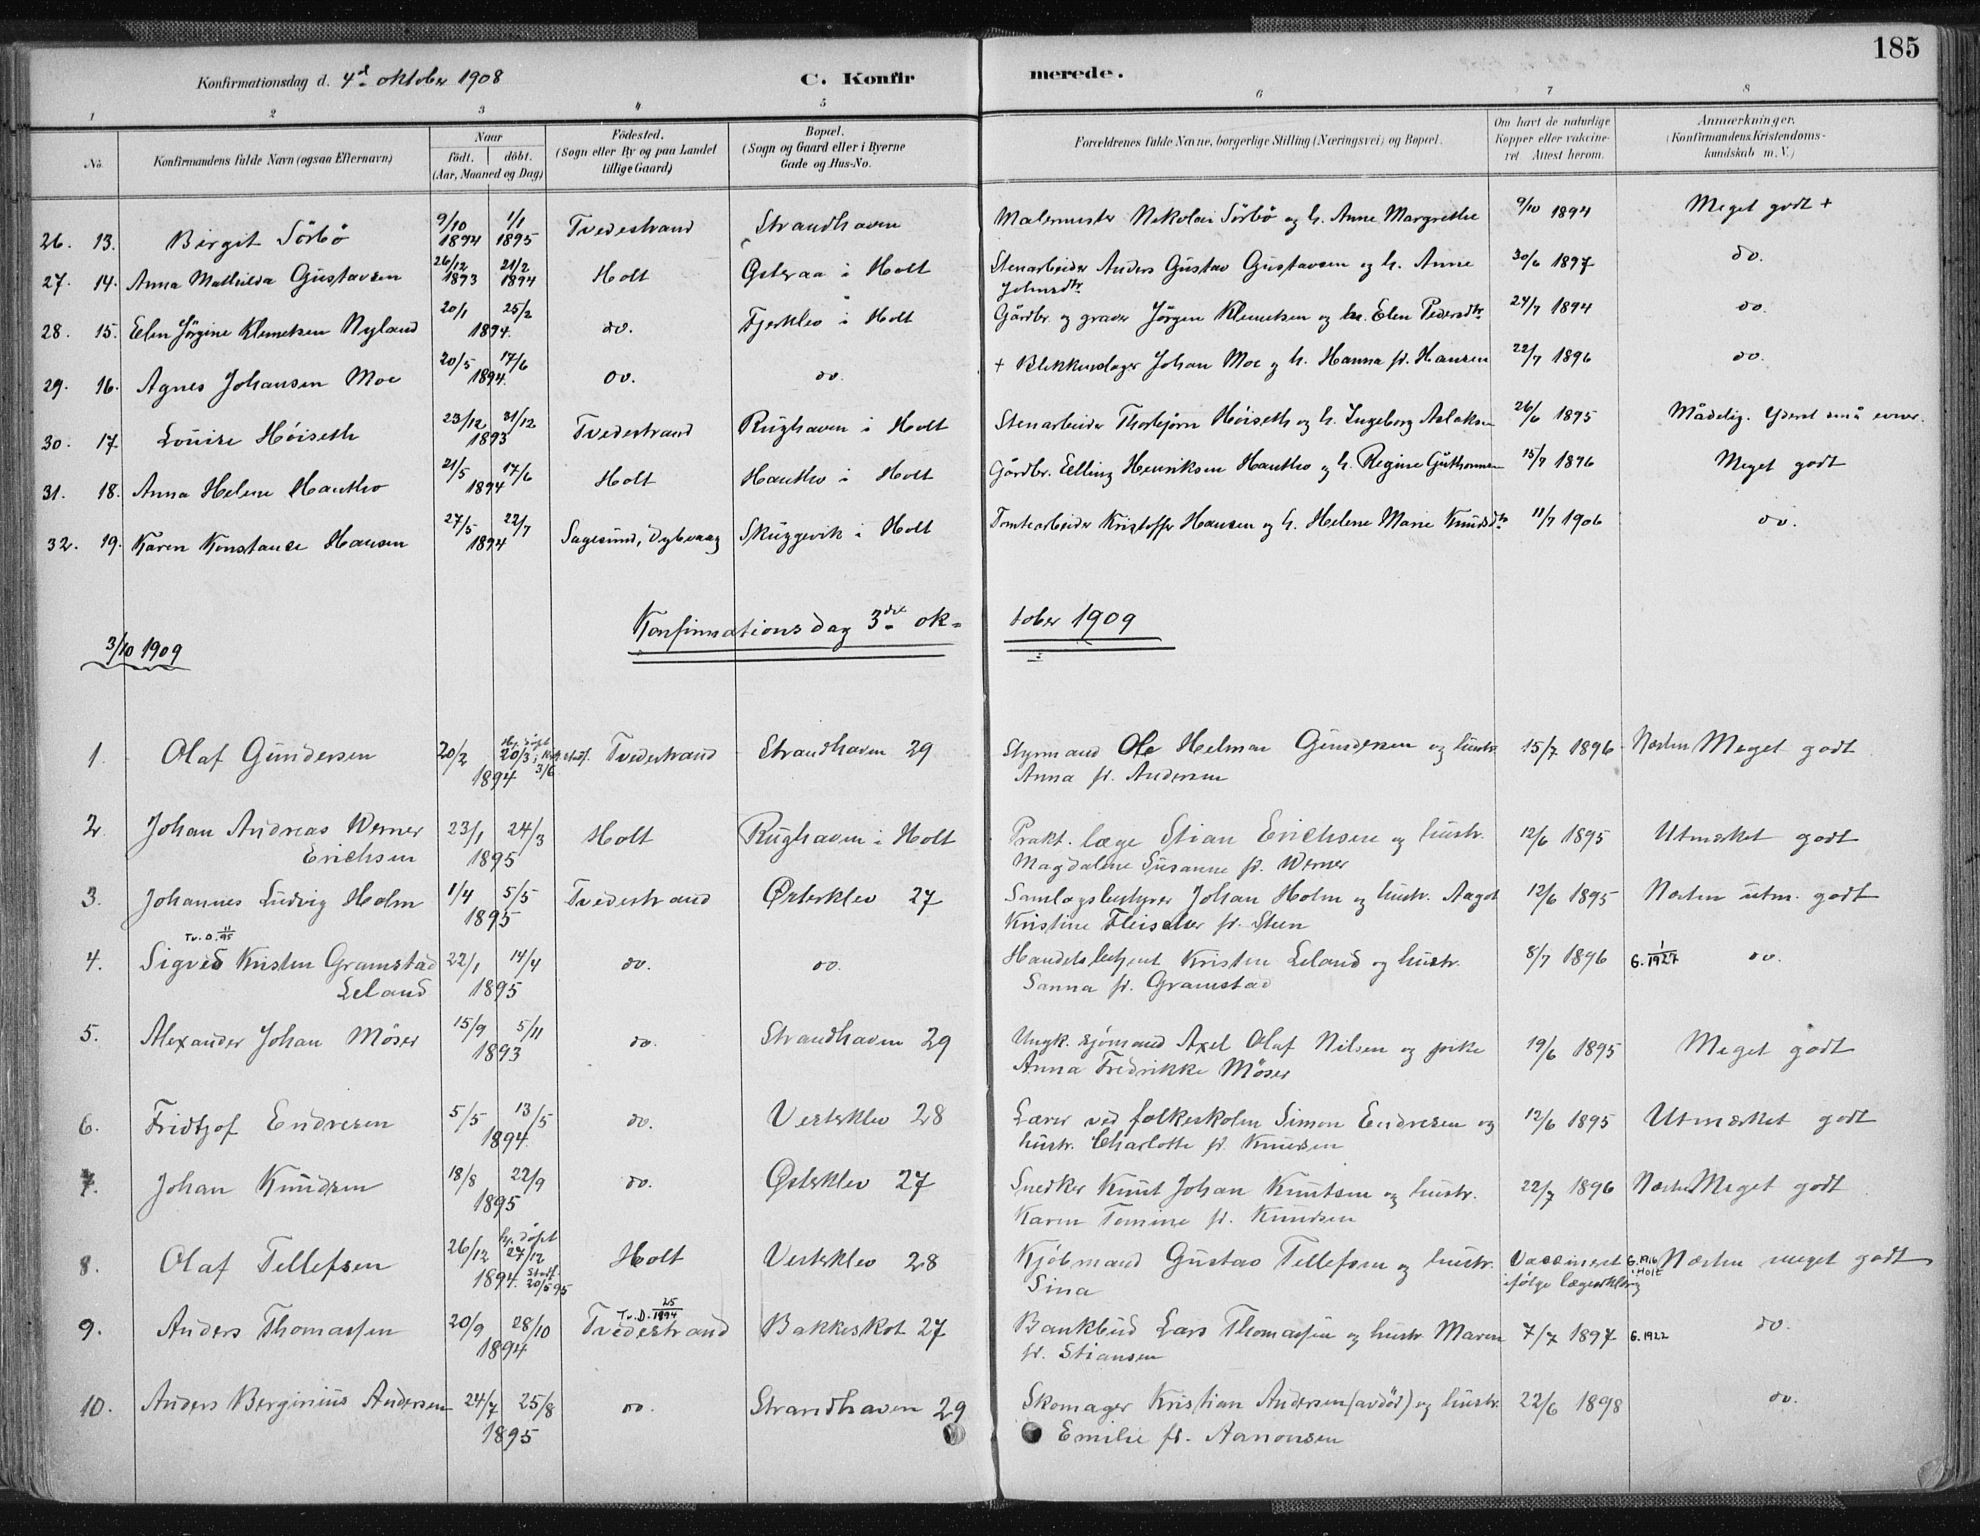 185
Konfirmationsdag d. 4de oktober 1908 C. Konfirmerede.
1 2 3 4 5 6 7 8
No. Konfirmandens fulde Navn (ogsaa Efternavn) Naar födt. döbt. (Aar, Maaned og Dag) Födested. (Sogn eller By og paa Landet tillige Gaard) Bopæl. (Sogn og Gaard eller i Byerne Gade og Hus-No. Forældrenes fulde Navne, borgerlige Stilling (Næringsvei) og Bopæl. Om havt de naturlige Kopper eller vaksineret. Attest herom. Anmærkninger. (Konfirmandens Kristendomskundskab m. V.)
26. 13. Birgit Sörbö 9/10 1894 1/1 1895 Tvedestrand Strandhaven Malermester Nikolai Sörbö og h. Anne Margrethe 9/10 1894 Meget godt +
27. 14. Anna Mathilda Gustavsen 26/12 1893 21/2 1894 Holt Østeraa i Holt Stenarbeider Anders Gustav Gustavsen og h. Anne 30/6 1897 do.
Johnsdtr
28. 15. Elen Jörgine Klemetsen Nyland 20/1 25/2 1894 do. Fjerklev i Holt Gårdbr. og graver Jörgen Klemetsen og h. Elen Pedersdtr 24/7 1894 do.
29. 16. Agnes Johansen Moe 20/5 17/6 1894. do. do. + Blikkenslager Johan Moe og h. Hanna f. Hansen 22/7 1896 do.
30. 17. Louise Höiseth 23/12 31/12 1893 Tvedestrand Rughaven i Holt Stenarbeider Thorbjörn Höiseth og h. Ingeborg Aslaksen 26/6 1895 Mådelig. Yderst små evner.
31. 18. Anna Helene Hantho 21/5 17/6 1894 Holt Hantho i Holt Gårdbr. Elling Henriksen Hantho og h. Regine Guthormsen 15/7 1896 Meget godt
32. 19. Karen Konstance Hansen 27/5 22/7 1894 Sagesund, Dybvaag Skuggevik i Holt Tomtearbeider Kristoffer Hansen og h. Helene Marie Knudsdtr 11/7 1906 do.
Konfirmationsdag 3die oktober 1909
3/10 1909
1 Olaf Gundersen 20/2 hj. döpt 20/3, stadf. 3/6 1894 Tvedestrand Strandhaven 29 Styrmand Ole Helmer Gundersen og hustr. 15/7 1896 Næsten Meget godt
Anna f. Andersen
2. Johan Andreas Werner 23/1 24/3 Holt Rughaven i Holt Prakt. læge Stian Erichsen og hustr. 12/6 1895 Utmerket godt
Erichsen 1895 Magdalene Susanne f. Werner
3. Johannes Ludvig Holm 1/4 5/5 Tvedestrand Østerklev 27 Samlagsbestyrer Johan Holm og hustr. Aagot 12/6 1895 Næsten utm. godt
1895 Kristine Fleischer f. Steen
Tv. D. 11/95
4. Sigved Kristen Gramstad 22/1 14/4 do. do. Handelsbetjent Kristen Leland og hustr. 8/7 1896 G. 1/1927 do.
Leland 1895 Sanna f. Gramstad
5. Alexander Johan Möser 15/9 5/11 do. Strandhaven 29 Ungk. sjömand Axel Olaf Nilsen og pike 19/6 1895 Meget godt
1893 Anna Fredrikke Möser
6. Fridtjof Endresen 5/5 13/5 do. Vesterklev 28 Lærer ved folkeskolen Simon Endresen og 12/6 1895 Utmærket godt
1894 hustr. Charlotte f. Knudsen
7. Johan Knudsen 18/8 22/9 do. Østerklev 27 Snedker Knut Johan Knutsen og hustr. 22/7 1896 Næsten Meget godt
1895 Karen Tomine f. Knudsen
8. Olaf Tellefsen 26/12 hj. döpt 27/12 Holt Vesterklev 28 Kjöbmand Gustav Tellefsen og hustr. Vaccineret G. 1916 i Holt Næsten meget godt
1894. Stadf. 20/5 95 Sina ifölge lægeerklæring
Tv. D. 25/1894
9. Anders Thomassen 20/9 28/10 Tvedestrand Bakkeskot 27 Bankbud Lars Thomassen og hustr. Maren 7/7 1897 G. 1922 do.
1894 f. Stiansen
10. Anders Berginius Andersen 24/7 25/8 do. Strandhaven 29 Skomager Kristian Andersen (avdöd) og hustr. 22/6 1898 do.
1895 Emilie f. Aanonsen